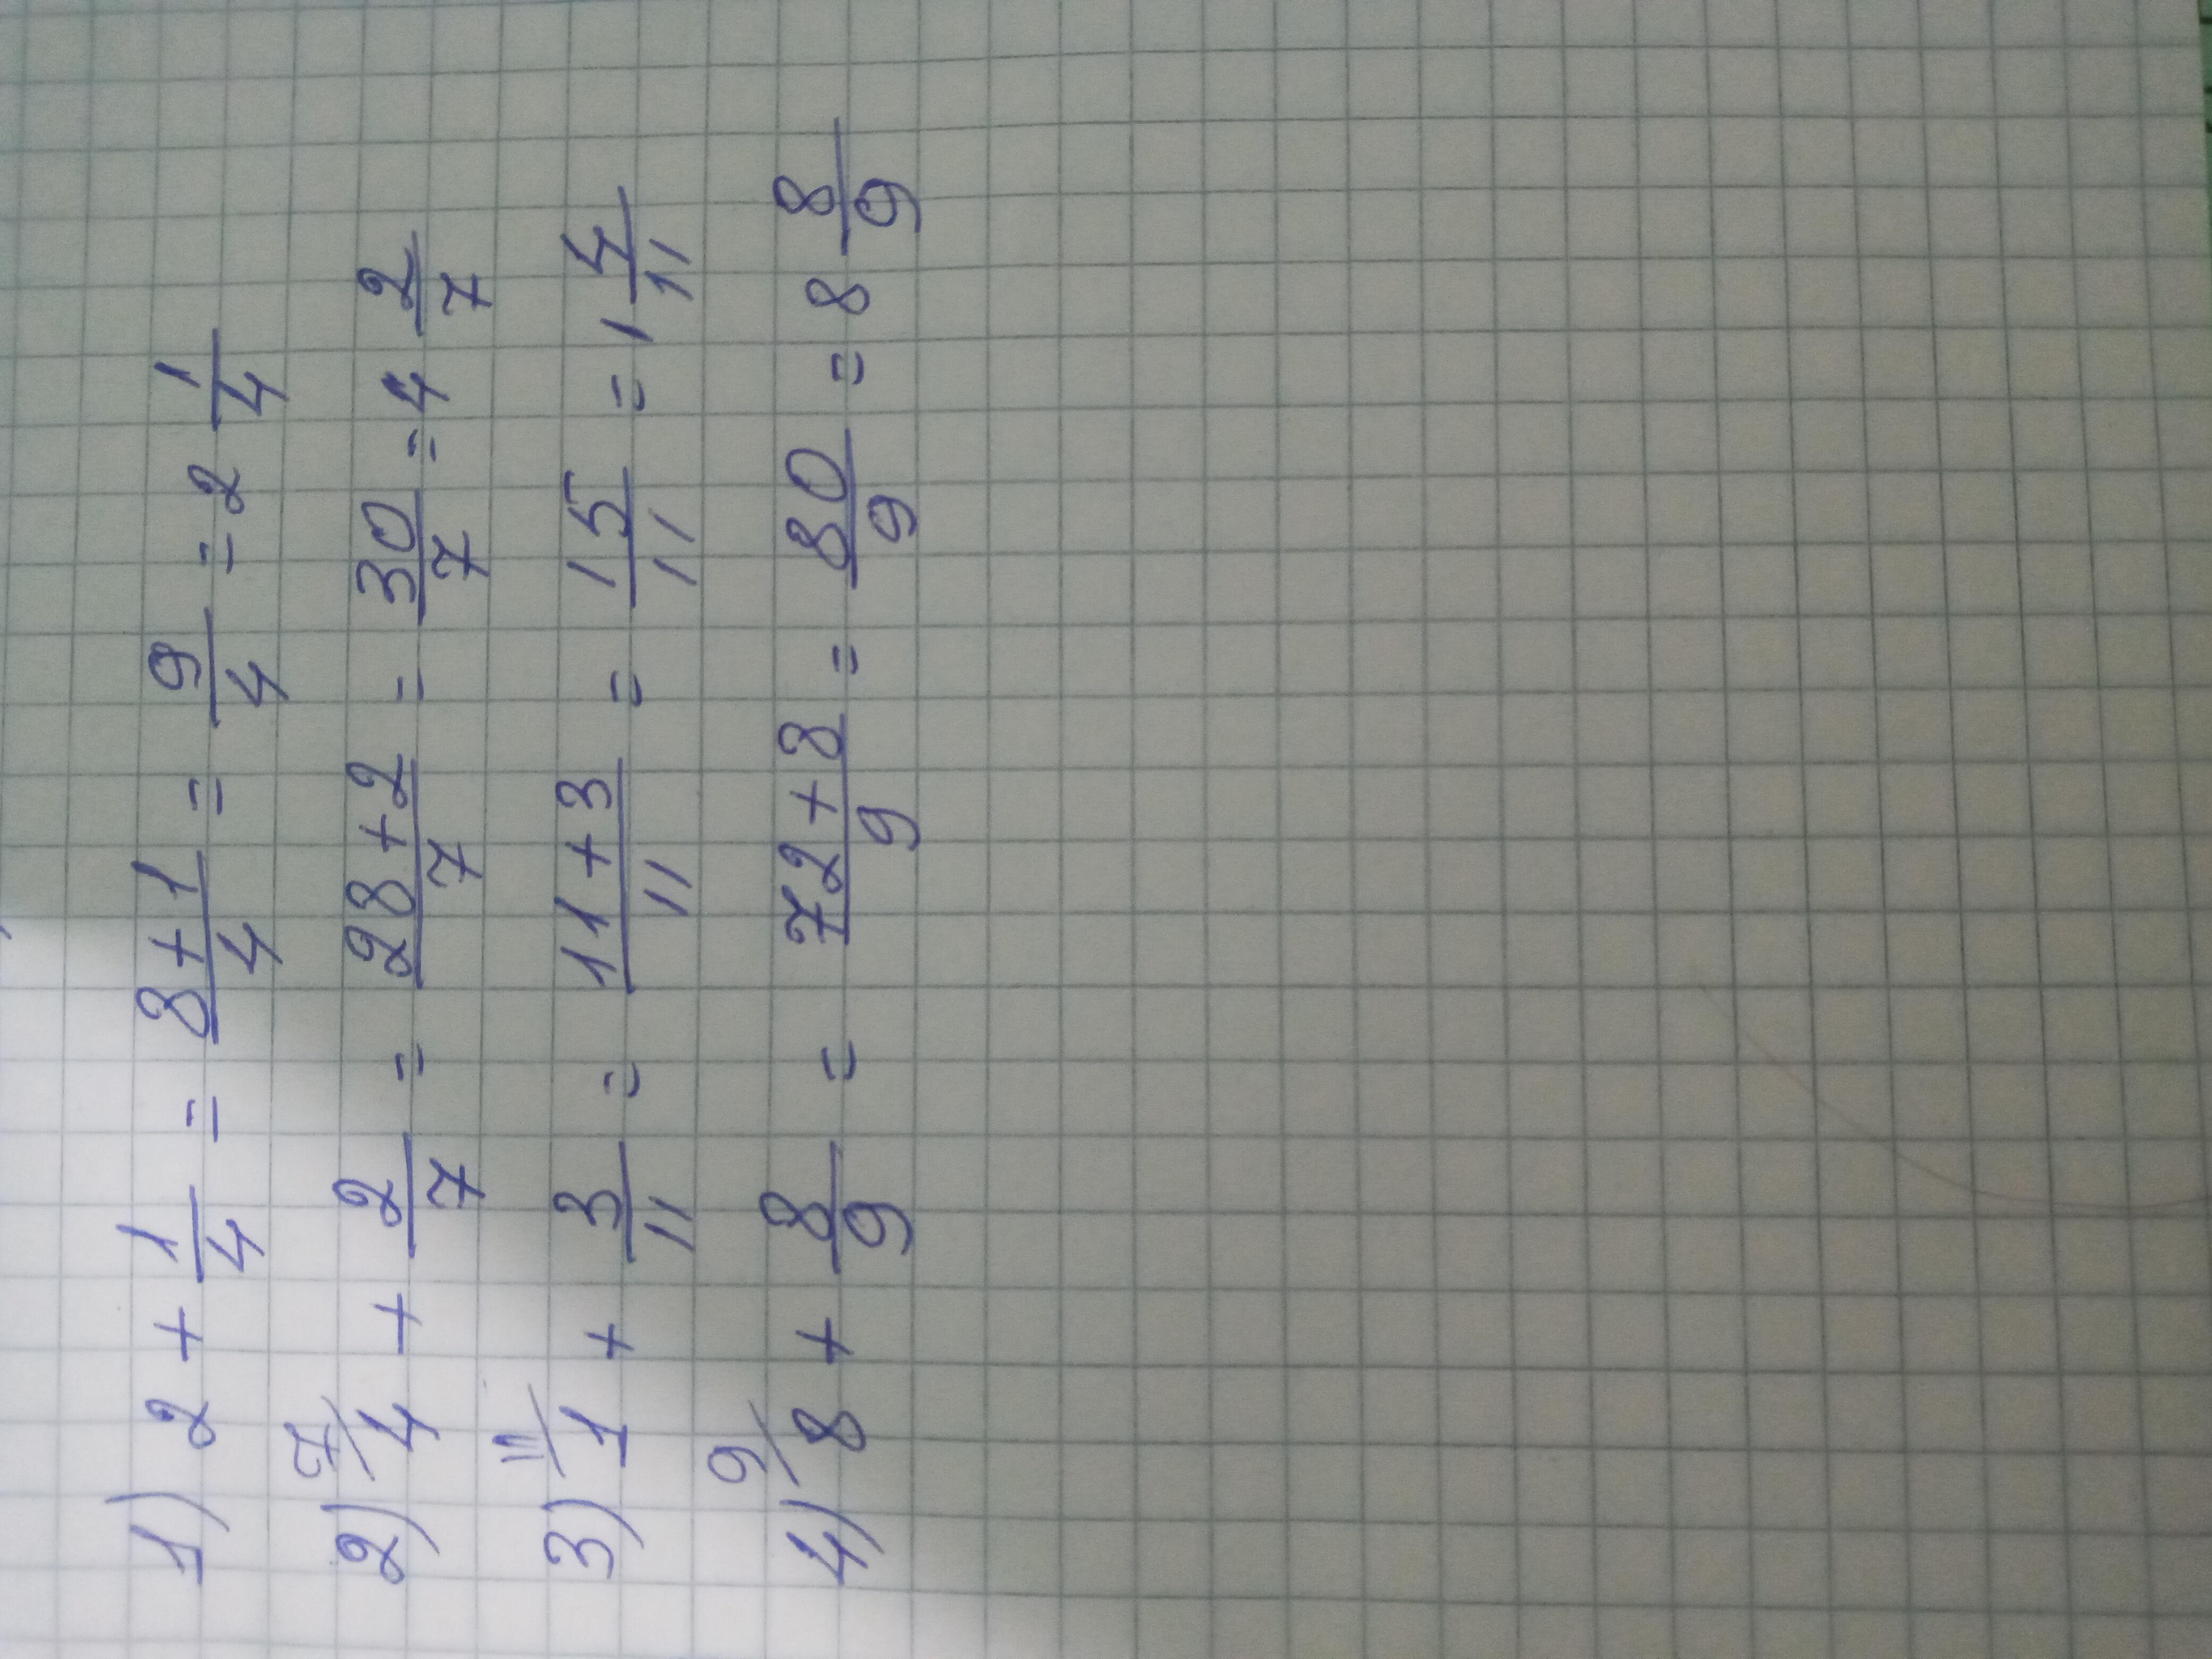 1) 2 + 1/4 = 8+1/4 = 9/4 = 2 1/4
2) 7/ 4 + 2/7 = 28+2/7 = 30/7 = 4 2/7
3) 11/ 1 + 3/11 = 11+3/11 = 15/11 = 1 4/11
4) 9/ 8 + 8/9 = 72+8/9 = 80/9 = 8 8/9